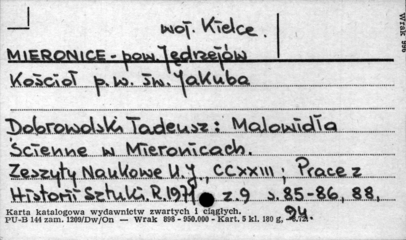 woj. Kielce.
MIERONICE - pow. Jędrzejów
Kościół p.w. św. Jakuba
Dobrowolski Tadeusz: Malowidła
Ścienne w Mieronicach.
Zeszyty Naukowe U.J., CCXXIII; Prace z
Historii Sztuki, R.1971 z.9 s.85-86, 88,
94.
Karta katalogowa wydawnictw zwartych i ciągłych.
PU-B 144 zam. 1209/Dw/On — Wrak 898 - 950.000 - Kart. 5 kl. 180 g,